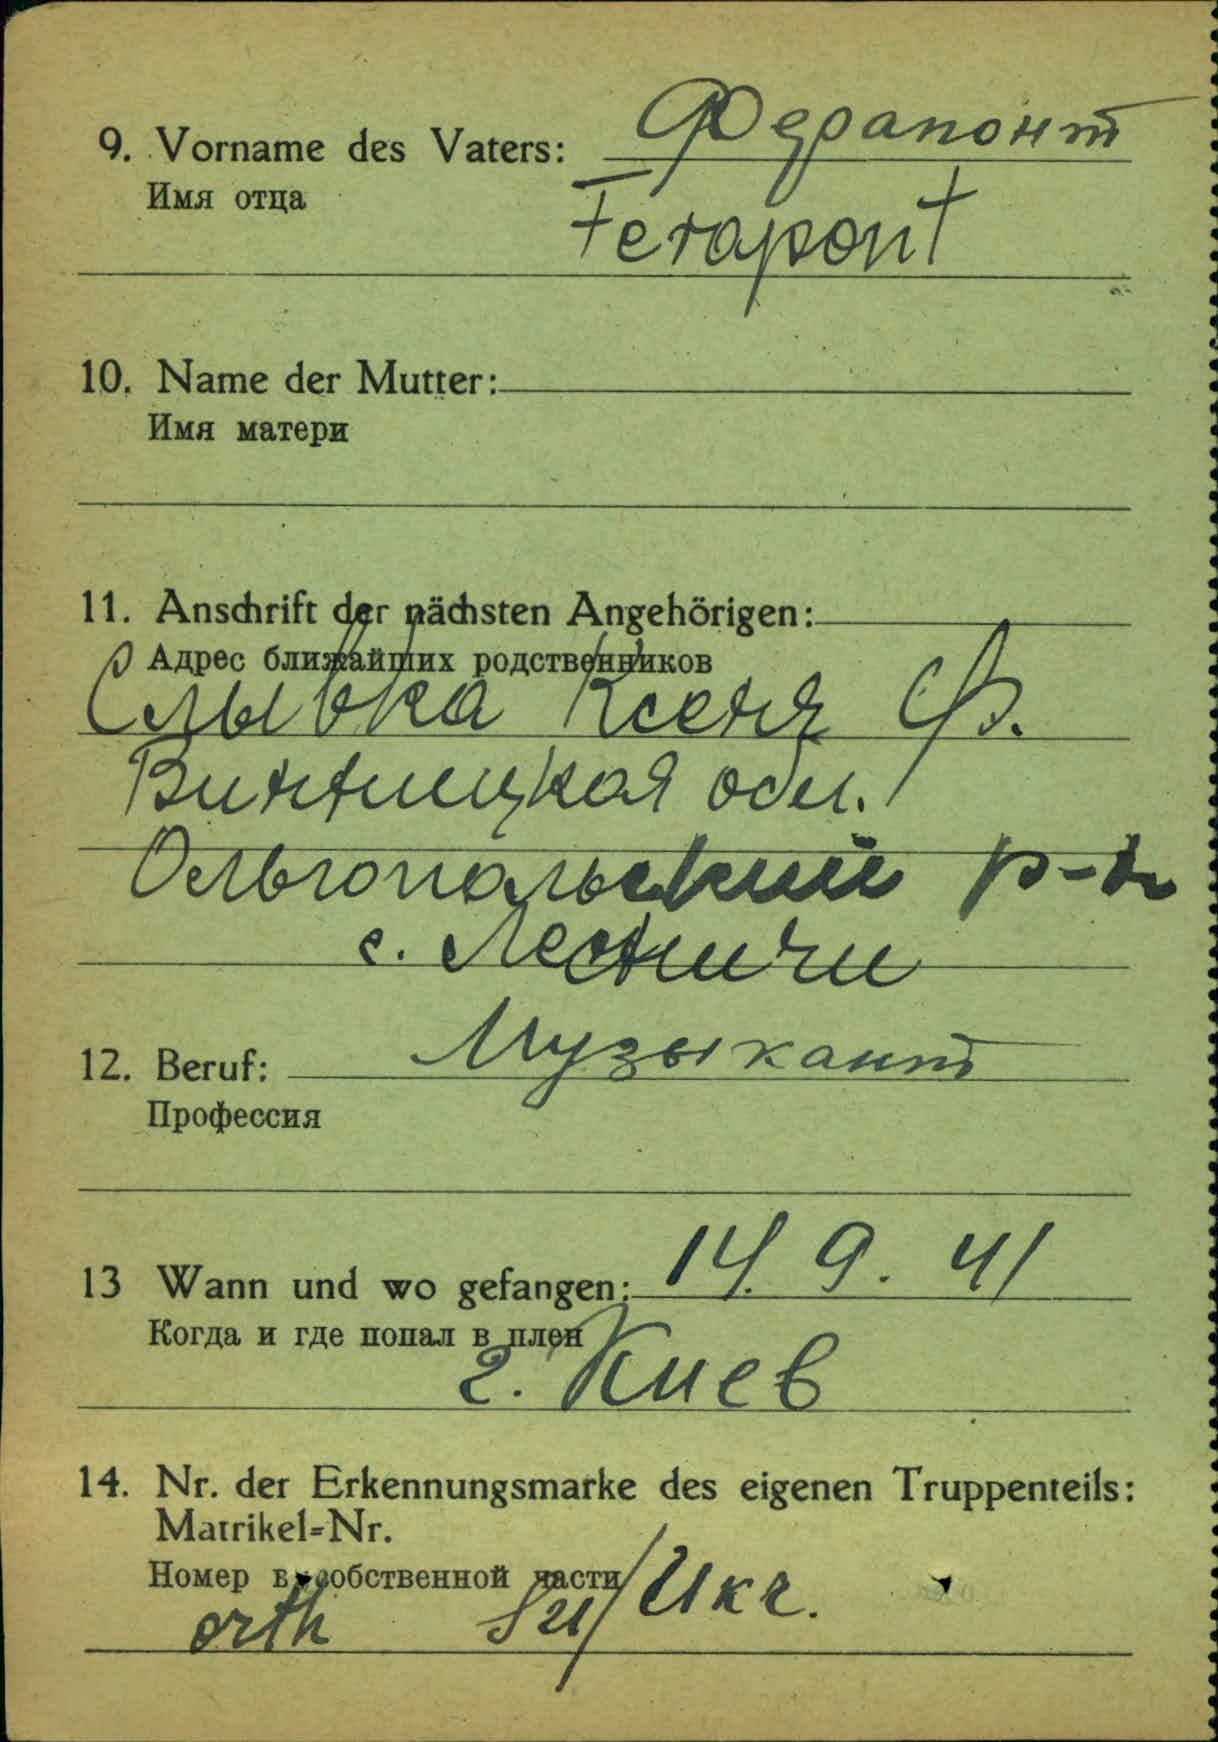 9. Vorname des Vaters: Ферапонт
Имя отца
Ferapont
10. Name der Mutter:
Имя матери
11. Anschrift der nächsten Angehörigen:
Адрес ближайших родственников
Слывка Ксеня Ф.
Винницкая обл.
Ольгопольский р-н
с. Лесничи
12. Beruf: Музыкант
Профессия
13 Wann und wo gefangen: 14. 9. 41
Когда и где попал в плен
г. Киев
14. Nr. der Erkennungsmarke des eigenen Truppenteils:
Matrikel-Nr.
Номер в собственной части
orth Su/Ukr.